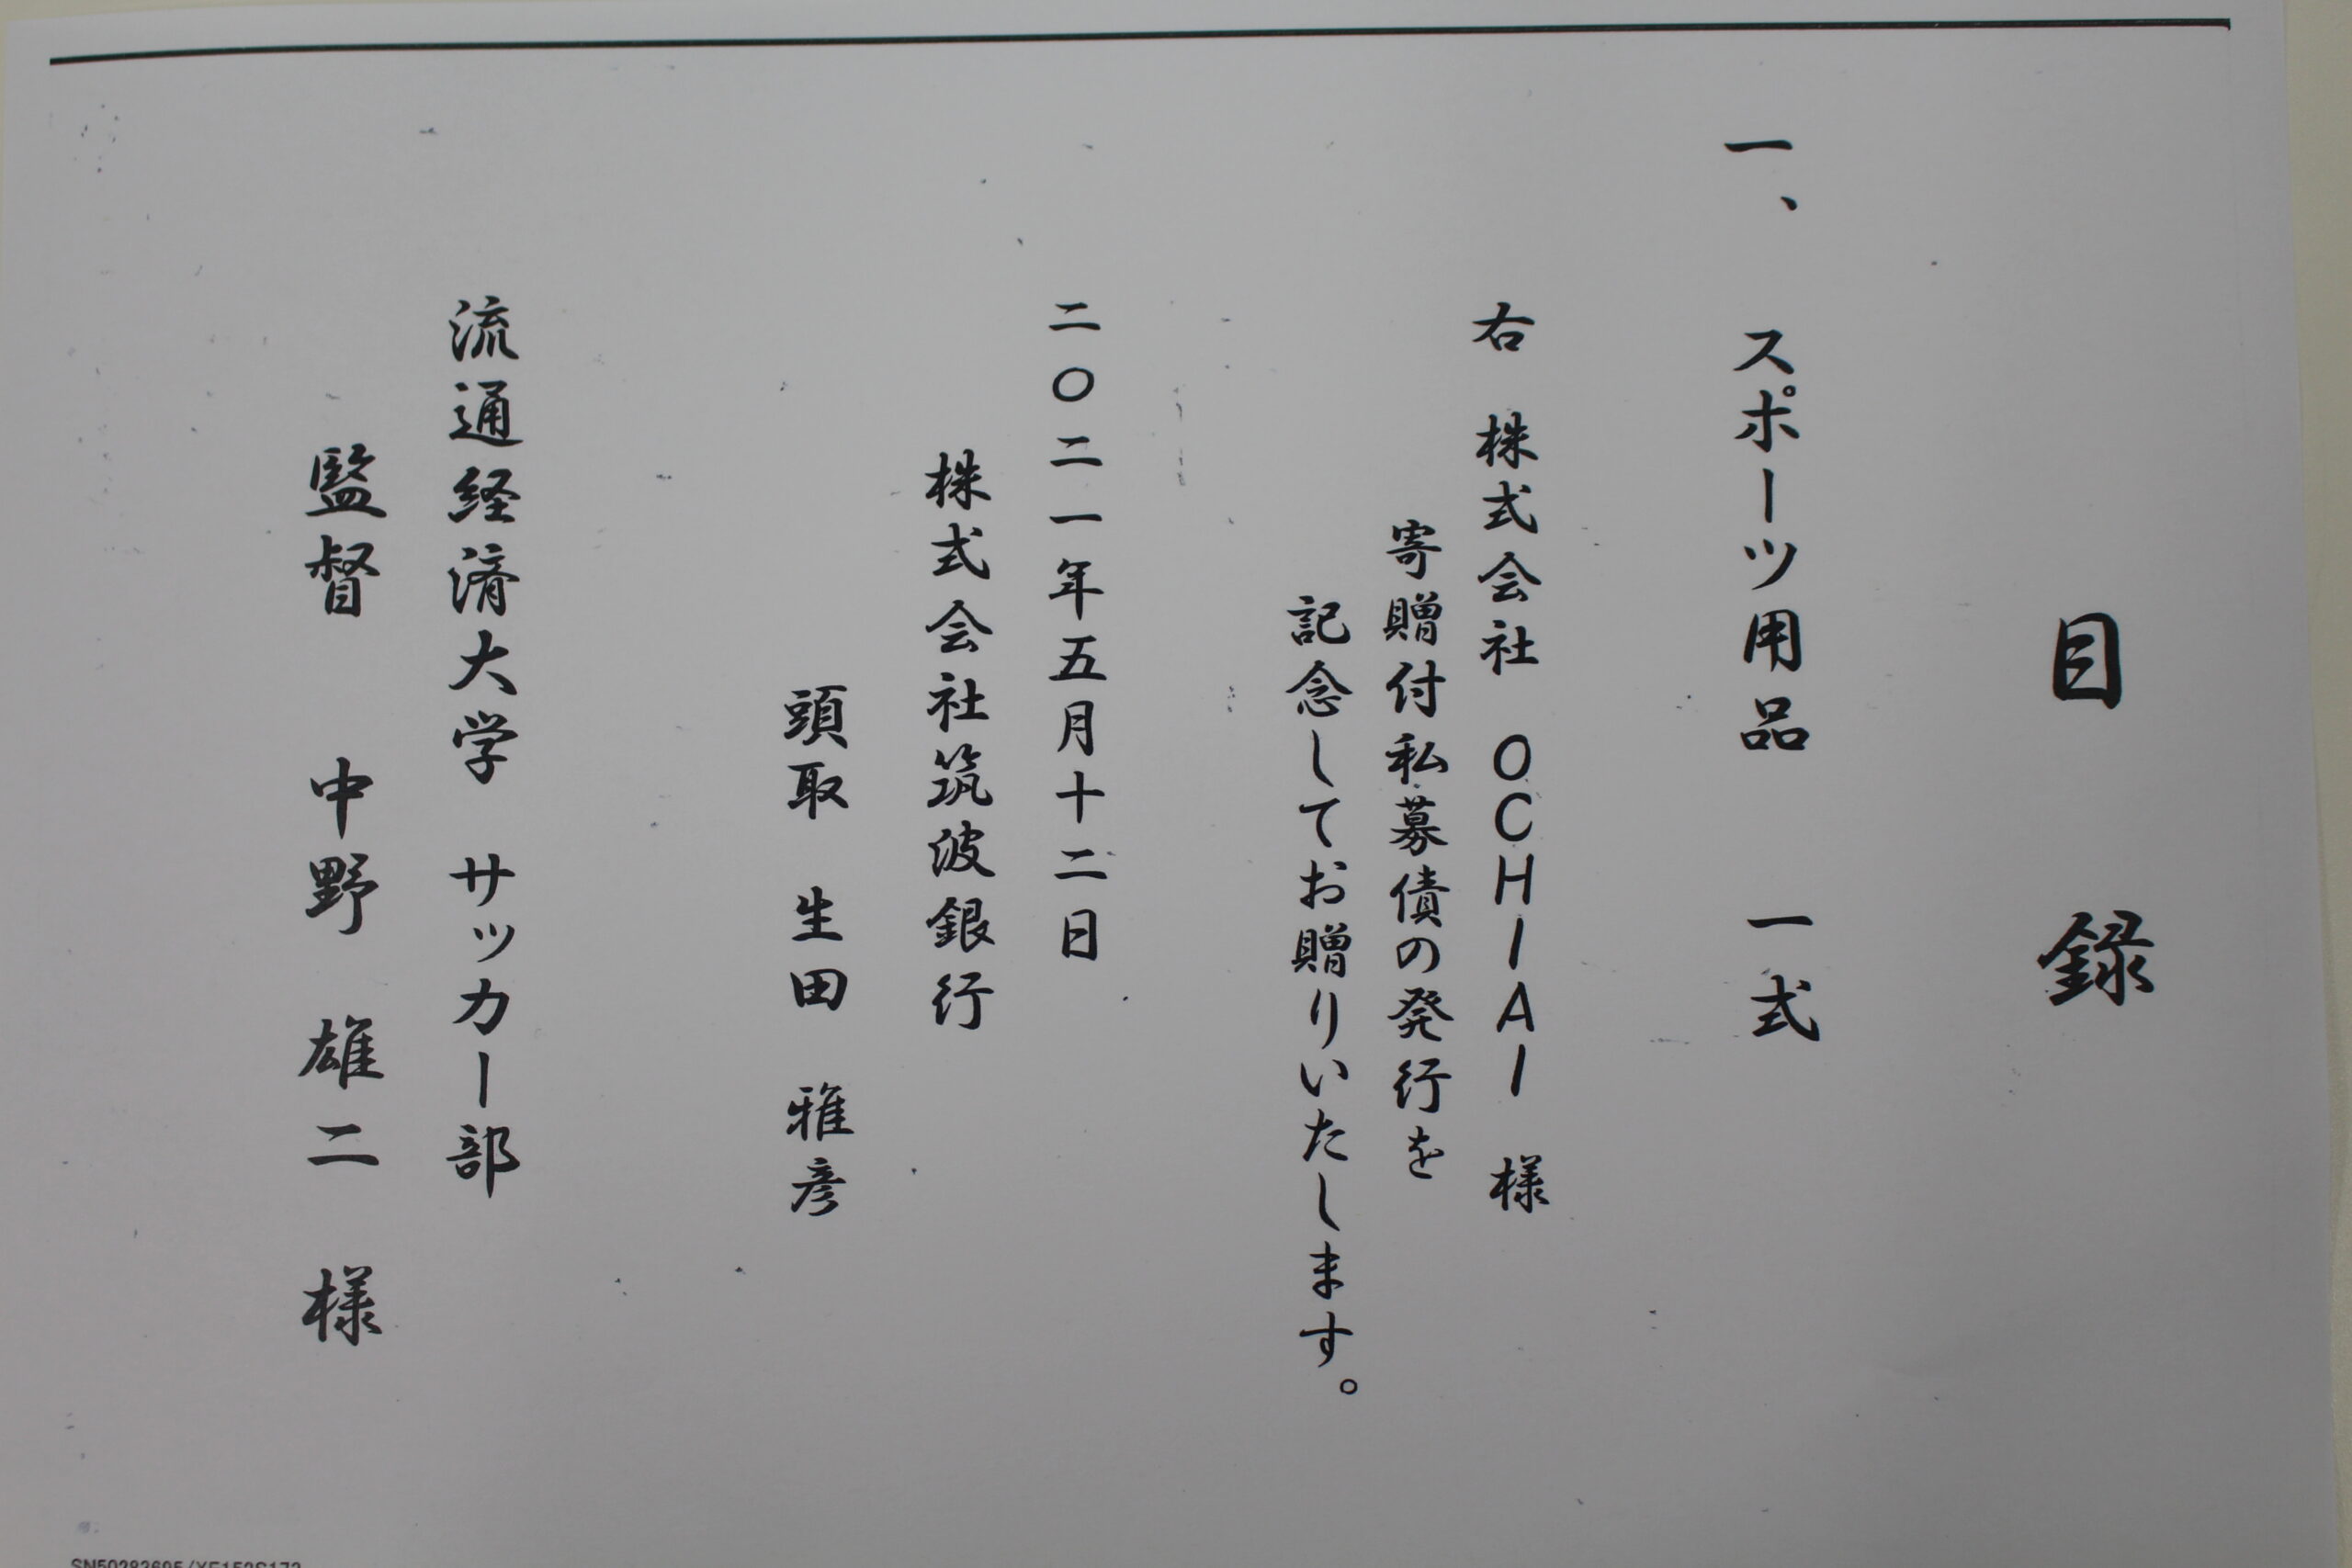 目録
一、スポーツ用品 一式
右 株式会社 OCHIAI 様
寄贈付私募債の発行を
記念してお贈りいたします。
二〇二一年五月十二日
株式会社筑波銀行
頭取 生田 雅彦
流通経済大学 サッカー部
監督 中野 雄二 様